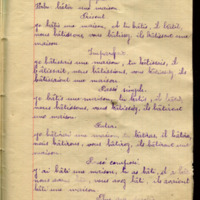 bâtir une maison
Présent
je bâtis une maison, tu bâtis, il bâtit,
nous bâtissons, vous bâtissez, ils bâtissent une
maison
Imparfait
je bâtissais une maison, tu bâtissais, il
bâtissait, nous bâtissions, vous bâtissiez, ils
bâtissaient une maison
Passé simple
je bâtis une maison, tu bâtis, il bâtit,
nous bâtîmes, vous bâtîtes, ils bâtirent une
maison
Futur
je bâtirai une maison, tu bâtiras, il bâtira,
nous bâtirons, vous bâtirez, ils bâtiront une
maison.
Passé composé
j'ai bâti une maison, tu as bâti, il a bâti
nous avons bâti, vous avez bâti, ils avaient
bâti une maison